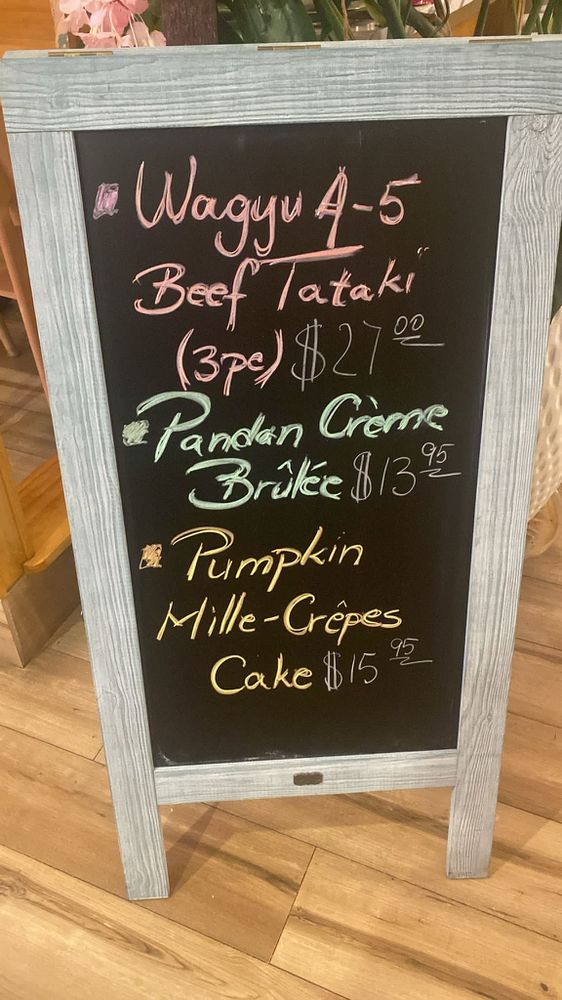 Wagyu A-5
Beef Tataki"
(3pc) $27.00
Pandan Crème
Brûlée $13.95
Pumpkin
Mille-Crêpes
Cake $15.95